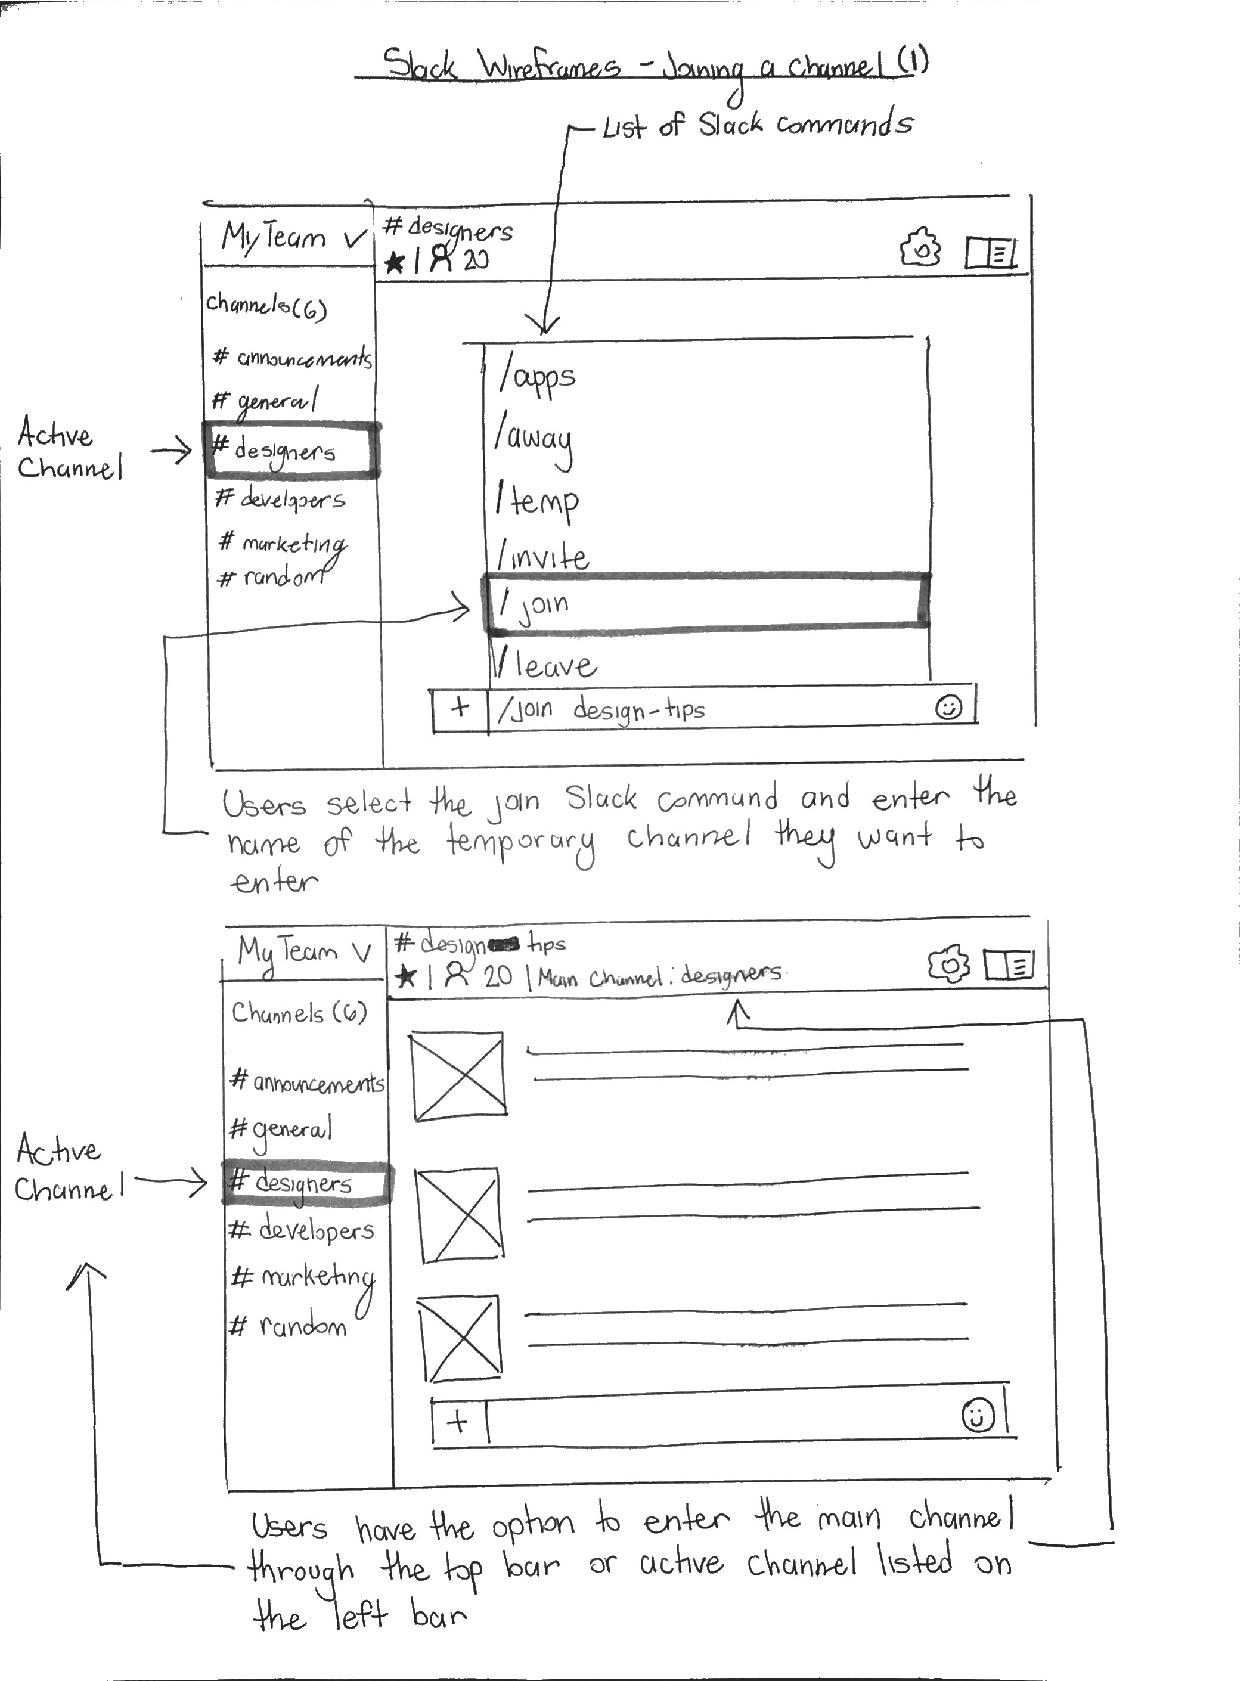 Slack Wireframes - Joining a Channel (1)
List of Slack commands
My Team
# designers
| 20
Channels (6)
# announcements
# general
Active
Channel
# designers
# developers
# marketing
# random
/apps
/away
/temp
/invite
/join
/leave
+ /join design-tips
Users select the join Slack command and enter the
name of the temporary channel they want to
enter
My Team
# design tips
| 20 | Main Channel: designers
Channels (6)
# announcements
# general
Active
Channel
# designers
# developers
# marketing
# random
+
Users have the option to enter the main channel
through the top bar or active channel listed on
the left bar